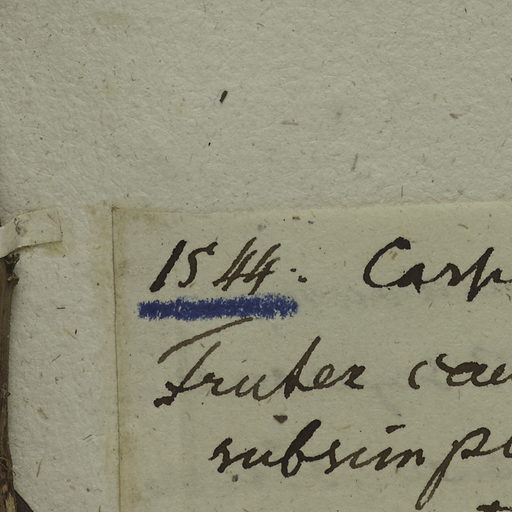 1544. Casp
Frutex cau
subsimpl